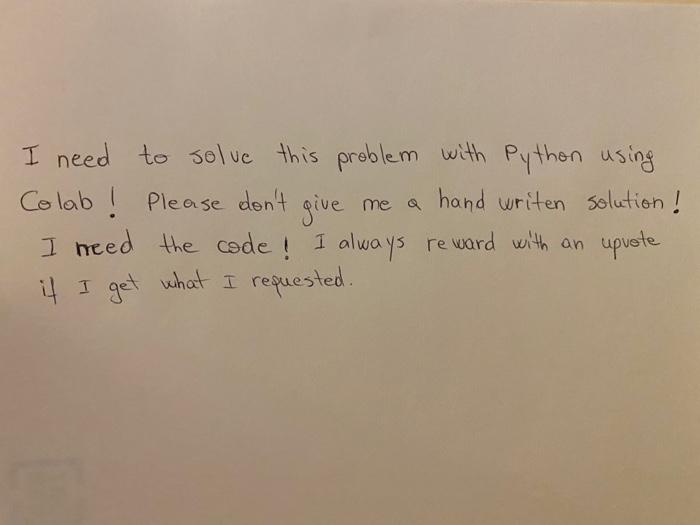 I need to solve this problem with Python using
Colab! Please don't give me a hand writen solution!
I need the code! I always reward with an upvote
if I get what I requested.